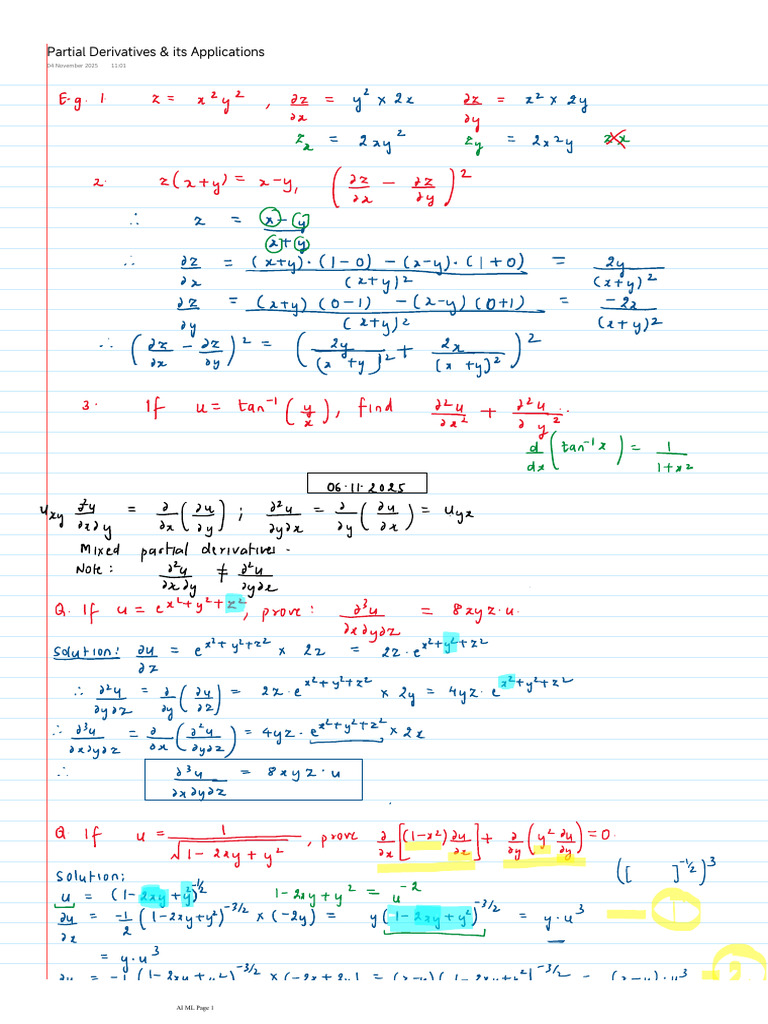 Partial Derivatives & its Applications
04 November 2025 11:01
E.g. 1. z = x²y² , ∂z/∂x = y² × 2x ∂z/∂y = x² × 2y
z_x = 2xy² z_y = 2x²y
2. z(x+y) = x-y, (∂z/∂x - ∂z/∂y)²
∴ z = (x-y)/(x+y)
∴ ∂z/∂x = ((x+y)·(1-0) - (x-y)·(1+0))/(x+y)² = 2y/(x+y)²
∂z/∂y = ((x+y)(0-1) - (x-y)(0+1))/(x+y)² = -2x/(x+y)²
∴ (∂z/∂x - ∂z/∂y)² = (2y/(x+y)² + 2x/(x+y)²)²
3. If u = tan⁻¹(y/x), find ∂²u/∂x² + ∂²u/∂y².
d/dx (tan⁻¹x) = 1/(1+x²)
06.11.2025
u_xy ∂²u/∂x∂y = ∂/∂x (∂u/∂y) ; ∂²u/∂y∂x = ∂/∂y (∂u/∂x) = u_yx
Mixed partial derivatives.
Note: ∂²u/∂x∂y ≠ ∂²u/∂y∂x
Q. If u = e^(x²+y²+z²), prove: ∂³u/∂x∂y∂z = 8xyz·u.
Solution: ∂u/∂z = e^(x²+y²+z²) × 2z = 2z·e^(x²+y²+z²)
∴ ∂²u/∂y∂z = ∂/∂y (∂u/∂z) = 2z·e^(x²+y²+z²) × 2y = 4yz·e^(x²+y²+z²)
∴ ∂³u/∂x∂y∂z = ∂/∂x (∂²u/∂y∂z) = 4yz·e^(x²+y²+z²) × 2x
∴ ∂³u/∂x∂y∂z = 8xyz·u
Q. If u = 1/√(1-2xy+y²), prove ∂/∂x [(1-x²) ∂u/∂x] + ∂/∂y (y² ∂u/∂y) = 0.
Solution: ([ ]^(-1/2))³
u = (1-2xy+y²)^(-1/2) 1-2xy+y² = u⁻²
∂u/∂x = -1/2 (1-2xy+y²)^(-3/2) × (-2y) = y(1-2xy+y²)^(-3/2) = y·u³ — ①
= y·u³
AI ML Page 1